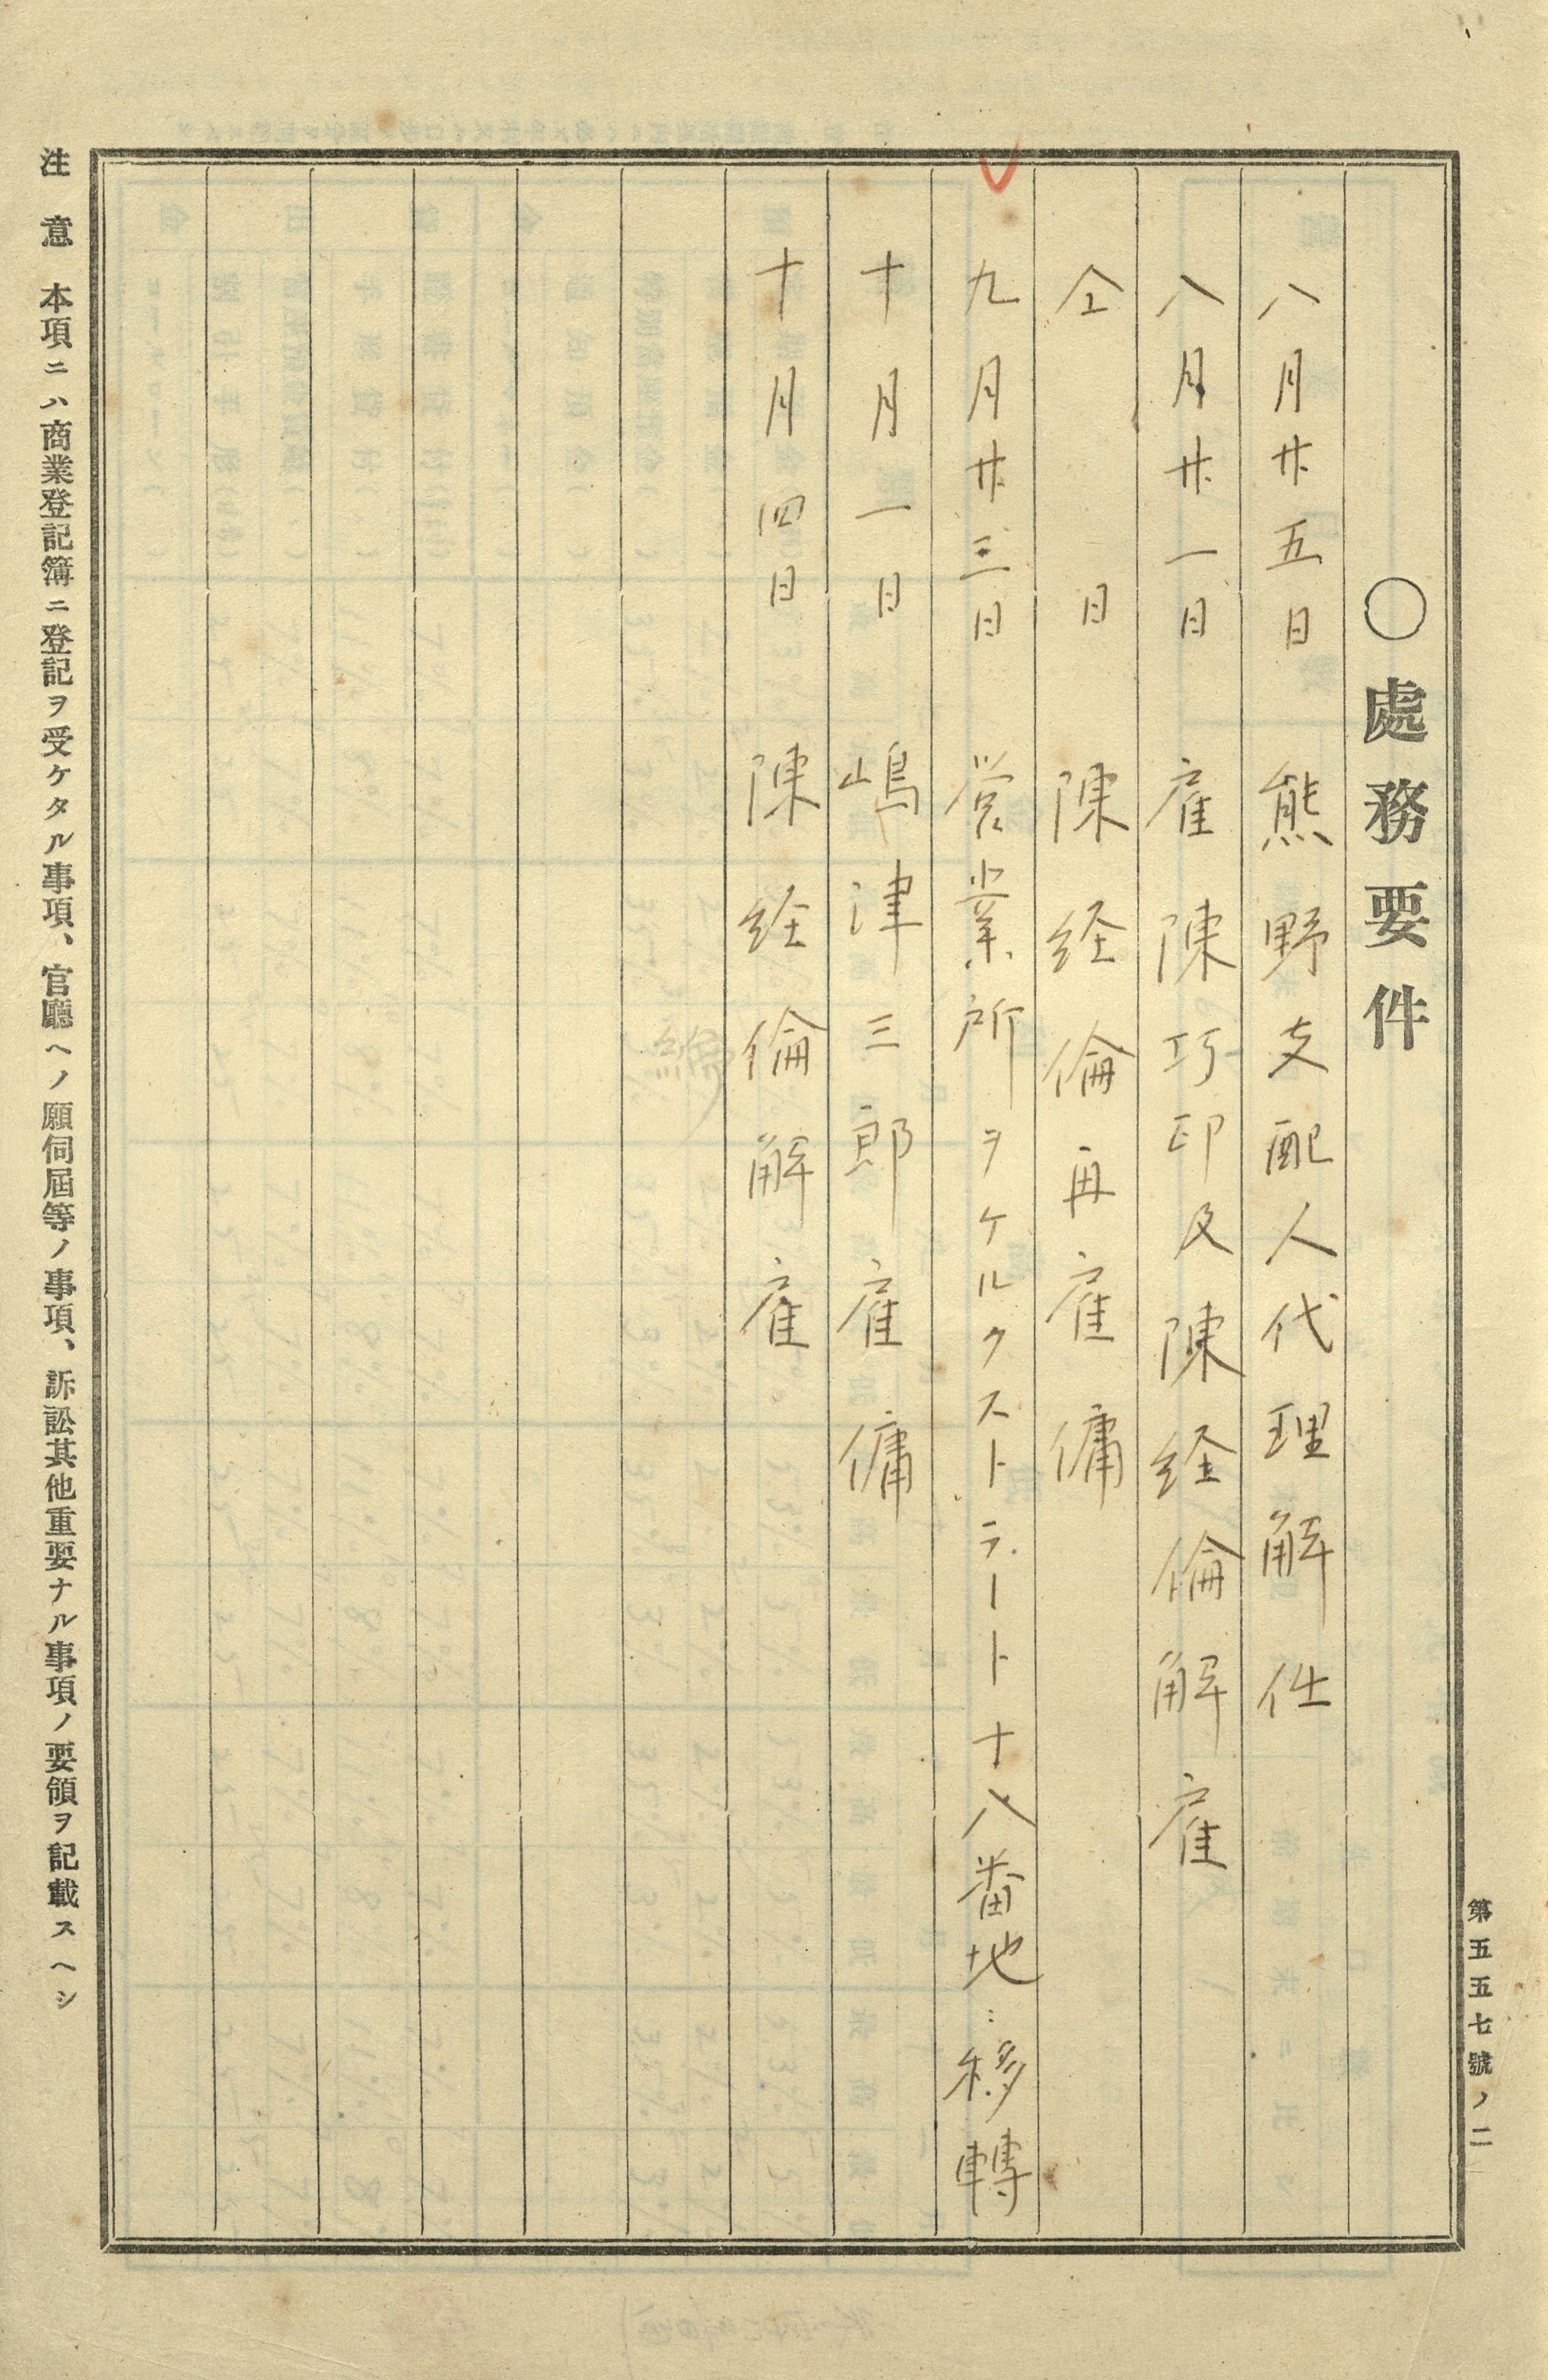 第五五七號ノ二
〇處務要件
八月廿五日 熊野支配人代理解任
八月廿一日 雇陳巧印及陳経倫解雇
仝 日 陳経倫再雇傭
九月廿三日 営業所ヲケルクストラート十八番地ニ移轉
十月一日 嶋津三郎雇傭
十月四日 陳経倫解雇
注意 本項ニハ商業登記簿ニ登記ヲ受ケタル事項、官廳ヘノ願伺屆等ノ事項、訴訟其他重要ナル事項ノ要領ヲ記載スヘシ